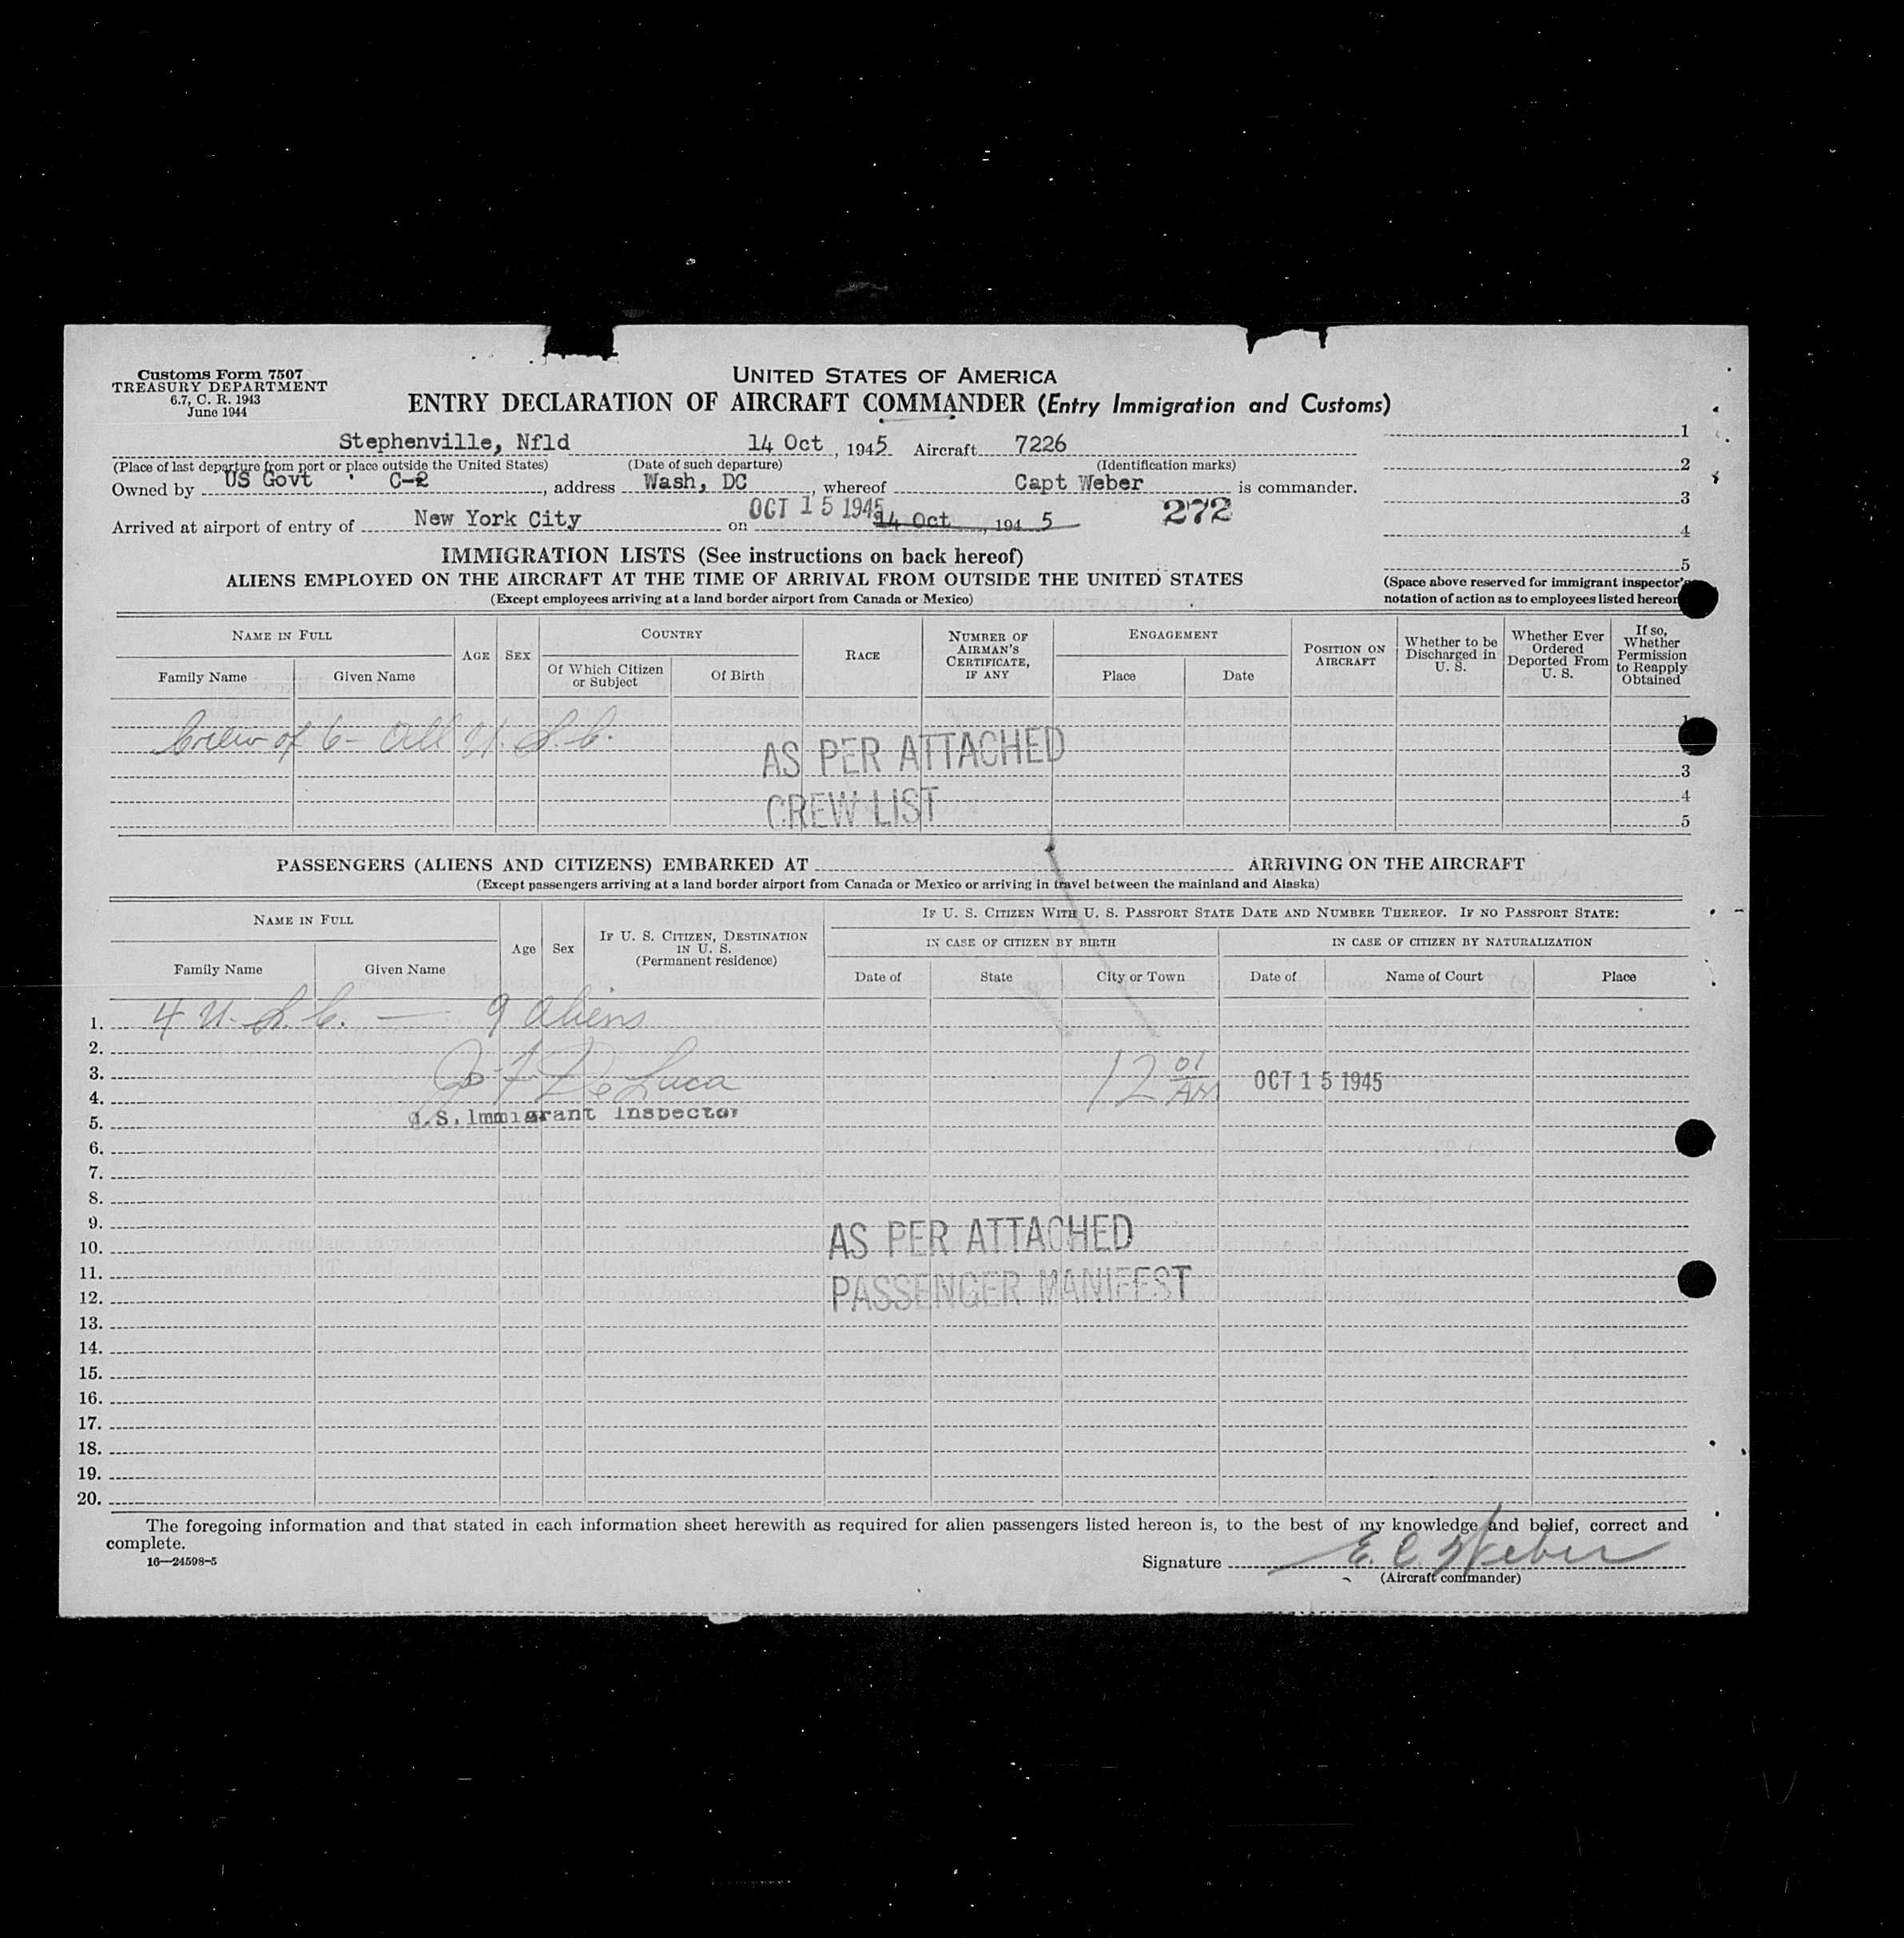 Customs Form 7507
TREASURY DEPARTMENT
6.7, C. R. 1943
June 1944
UNITED STATES OF AMERICA
ENTRY DECLARATION OF AIRCRAFT COMMANDER (Entry Immigration and Customs)
Stephenville, Nfld 14 Oct, 1945 Aircraft 7226
(Place of last departure from port or place outside the United States) (Date of such departure) (Identification marks)
Owned by US Govt C-2, address Wash, DC, whereof Capt Weber is commander.
Arrived at airport of entry of New York City on OCT 15 1945 14 Oct, 1945 272
1
2
3
4
5
(Space above reserved for immigrant inspector's
notation of action as to employees listed hereon
IMMIGRATION LISTS (See instructions on back hereof)
ALIENS EMPLOYED ON THE AIRCRAFT AT THE TIME OF ARRIVAL FROM OUTSIDE THE UNITED STATES
(Except employees arriving at a land border airport from Canada or Mexico)
NAME IN FULL
Family Name Given Name
AGE
SEX
COUNTRY
Of Which Citizen or Subject
Of Birth
RACE
NUMBER OF AIRMAN'S CERTIFICATE, IF ANY
ENGAGEMENT
Place Date
POSITION ON AIRCRAFT
Whether to be Discharged in U. S.
Whether Ever Ordered Deported From U. S.
If so, Whether Permission to Reapply Obtained
Crew of 6 - All U. S. C.
AS PER ATTACHED
CREW LIST
1
3
4
5
PASSENGERS (ALIENS AND CITIZENS) EMBARKED AT ARRIVING ON THE AIRCRAFT
(Except passengers arriving at a land border airport from Canada or Mexico or arriving in travel between the mainland and Alaska)
NAME IN FULL
Family Name Given Name
Age
Sex
IF U. S. CITIZEN, DESTINATION IN U. S.
(Permanent residence)
IF U. S. CITIZEN WITH U. S. PASSPORT STATE DATE AND NUMBER THEREOF. IF NO PASSPORT STATE:
IN CASE OF CITIZEN BY BIRTH IN CASE OF CITIZEN BY NATURALIZATION
Date of State City or Town Date of Name of Court Place
1. 4 U. S. C. — 9 Aliens
2.
3. Jos F De Luca 12 01 AM OCT 15 1945
4.
5. U.S. Immigrant Inspector
6.
7.
8.
9.
10. AS PER ATTACHED
11.
12. PASSENGER MANIFEST
13.
14.
15.
16.
17.
18.
19.
20.
The foregoing information and that stated in each information sheet herewith as required for alien passengers listed hereon is, to the best of my knowledge and belief, correct and
complete.
16—24598-5
Signature E. C. Weber
(Aircraft commander)